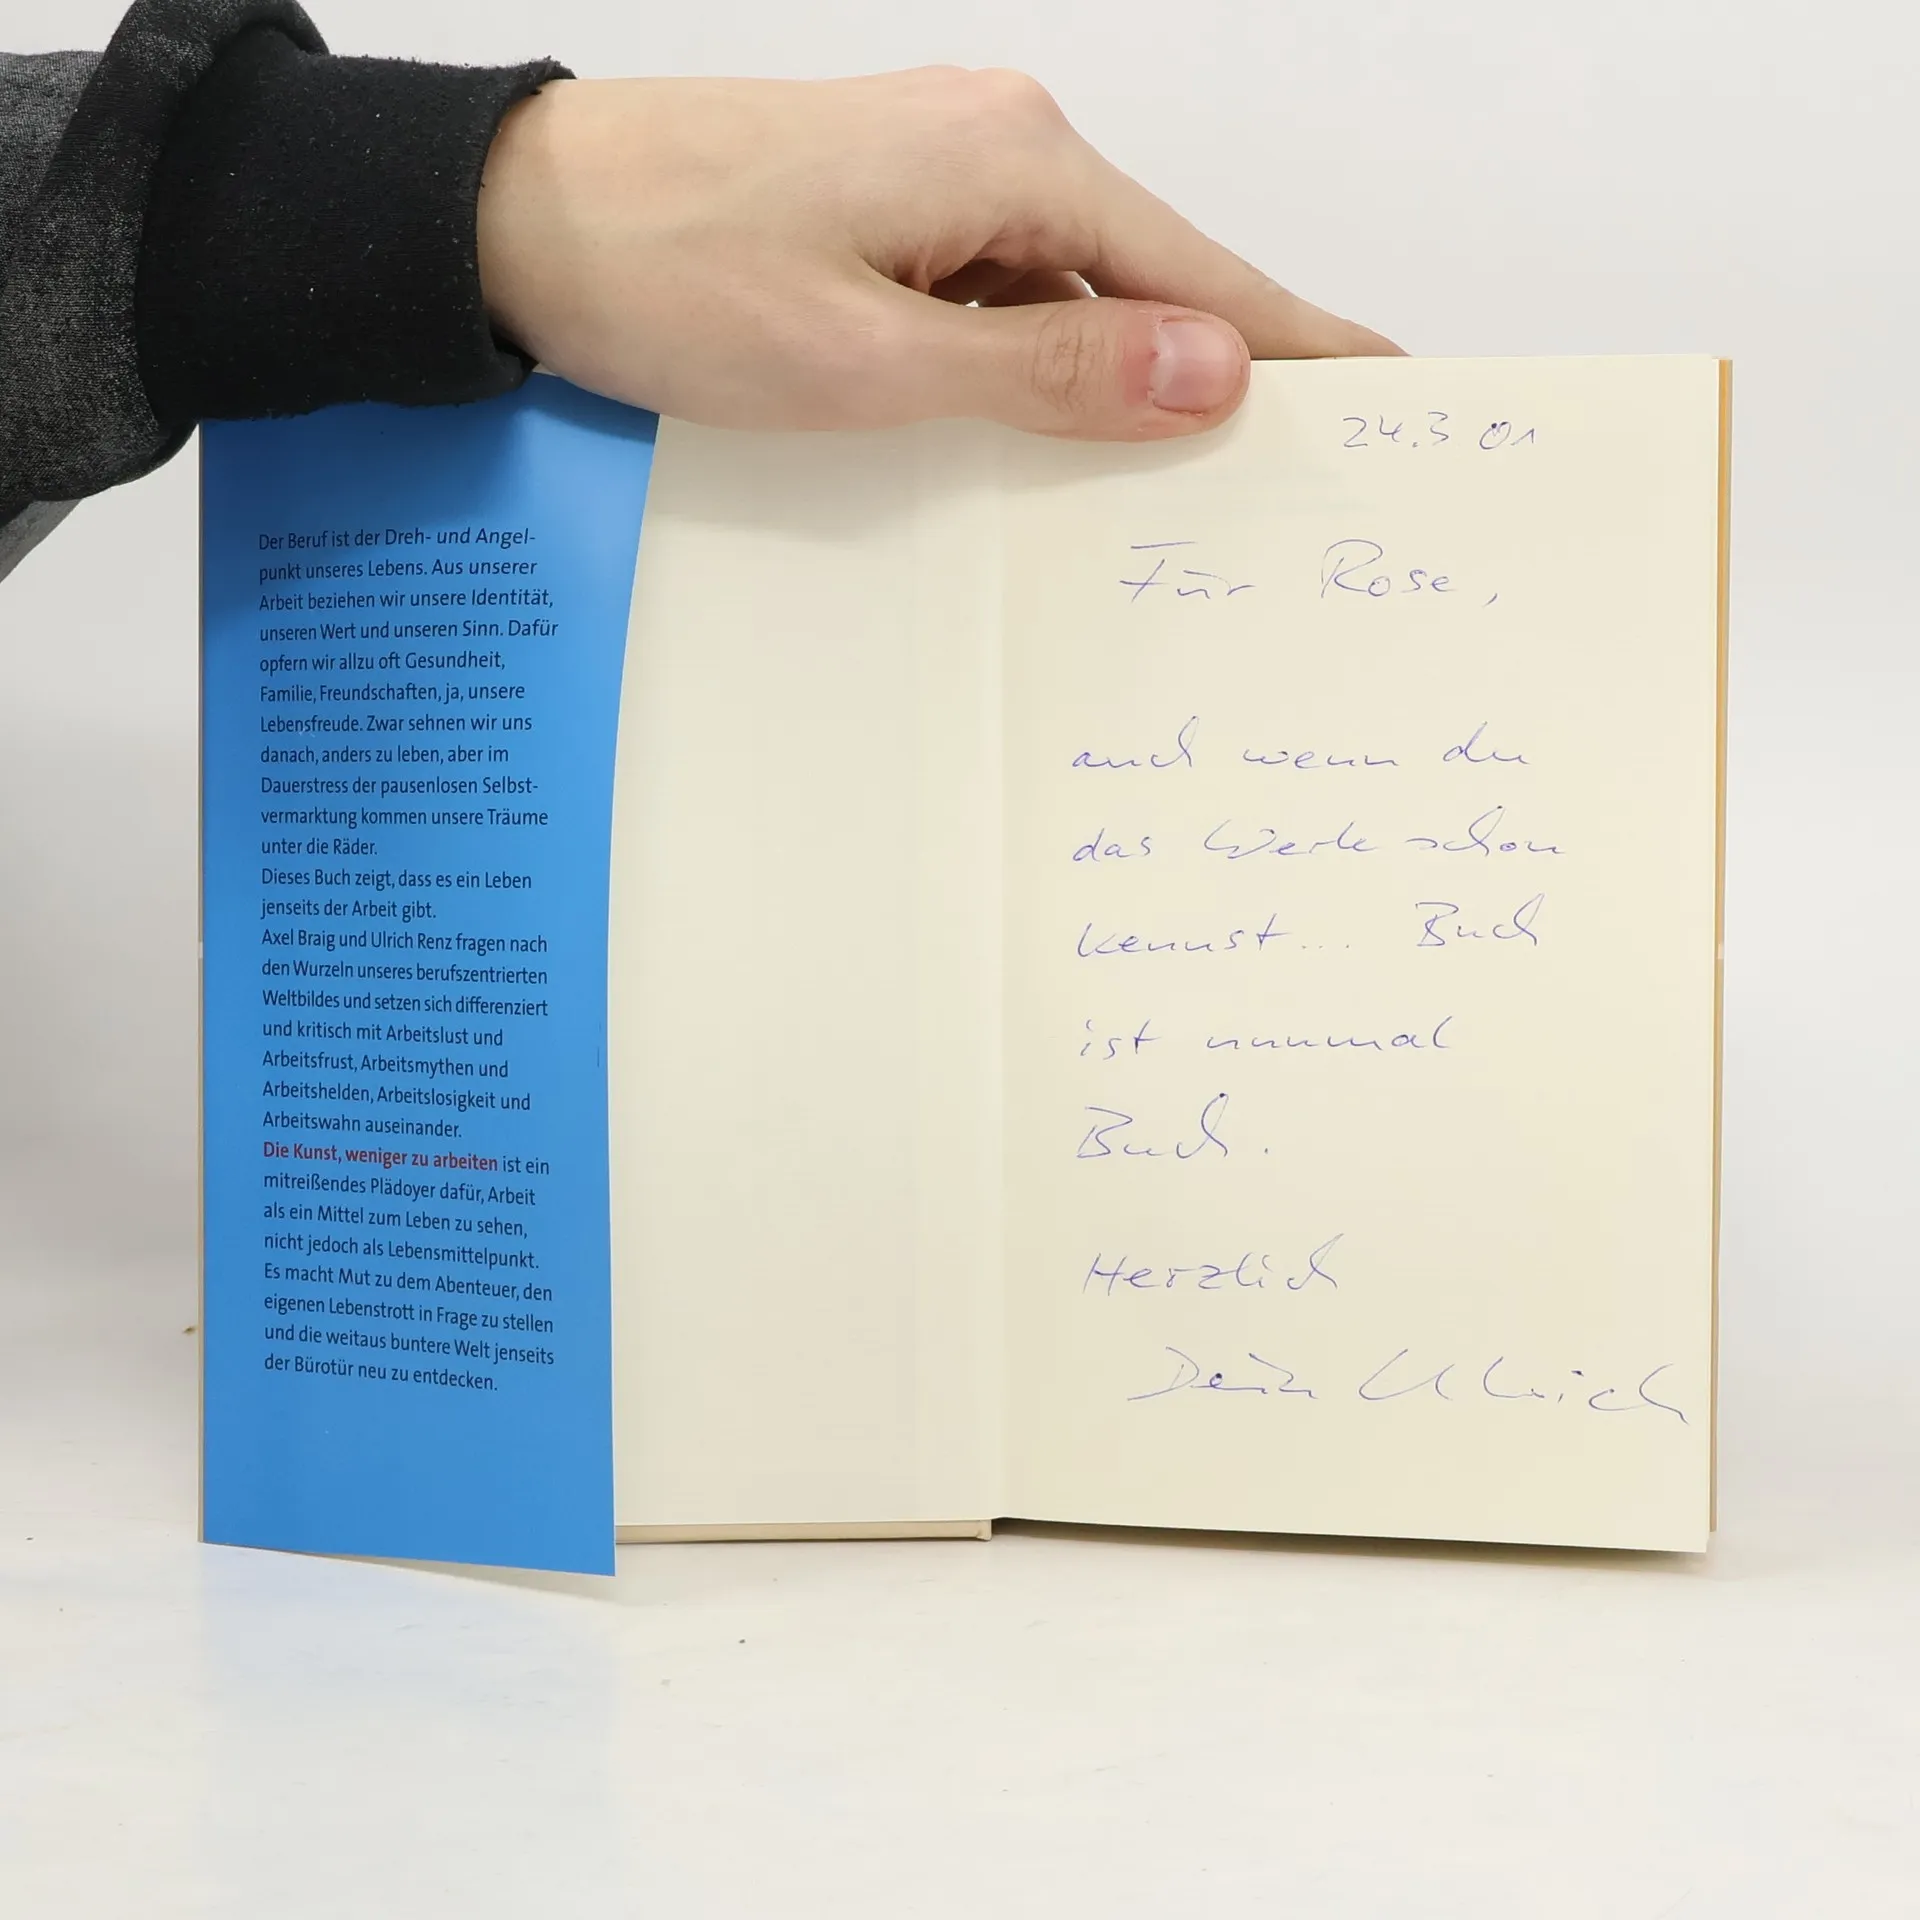 Der Beruf ist der Dreh- und Angel-
punkt unseres Lebens. Aus unserer
Arbeit beziehen wir unsere Identität,
unseren Wert und unseren Sinn. Dafür
opfern wir allzu oft Gesundheit,
Familie, Freundschaften, ja, unsere
Lebensfreude. Zwar sehnen wir uns
danach, anders zu leben, aber im
Dauerstress der pausenlosen Selbst-
vermarktung kommen unsere Träume
unter die Räder.
Dieses Buch zeigt, dass es ein Leben
jenseits der Arbeit gibt.
Axel Braig und Ulrich Renz fragen nach
den Wurzeln unseres berufszentrierten
Weltbildes und setzen sich differenziert
und kritisch mit Arbeitslust und
Arbeitsfrust, Arbeitsmythen und
Arbeitshelden, Arbeitslosigkeit und
Arbeitswahn auseinander.
Die Kunst, weniger zu arbeiten ist ein
mitreißendes Plädoyer dafür, Arbeit
als ein Mittel zum Leben zu sehen,
nicht jedoch als Lebensmittelpunkt.
Es macht Mut zu dem Abenteuer, den
eigenen Lebenstrott in Frage zu stellen
und die weitaus buntere Welt jenseits
der Bürotür neu zu entdecken.
24.3 01
Für Rose,
auch wenn du
das Werk schon
kennst... Buch
ist nunmal
Buch.
Herzlich
Dein Ulrich